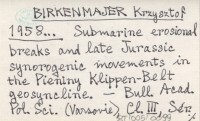 BIRKENMAJER Krzysztof
1958... Submarine erosional
breaks and late Jurassic
synorogenic movements in
the Pieniny Klippen-Belt
geosyncline. — Bull Acad.
Pol. Sci. (Varsovie) Cl III, Ser.